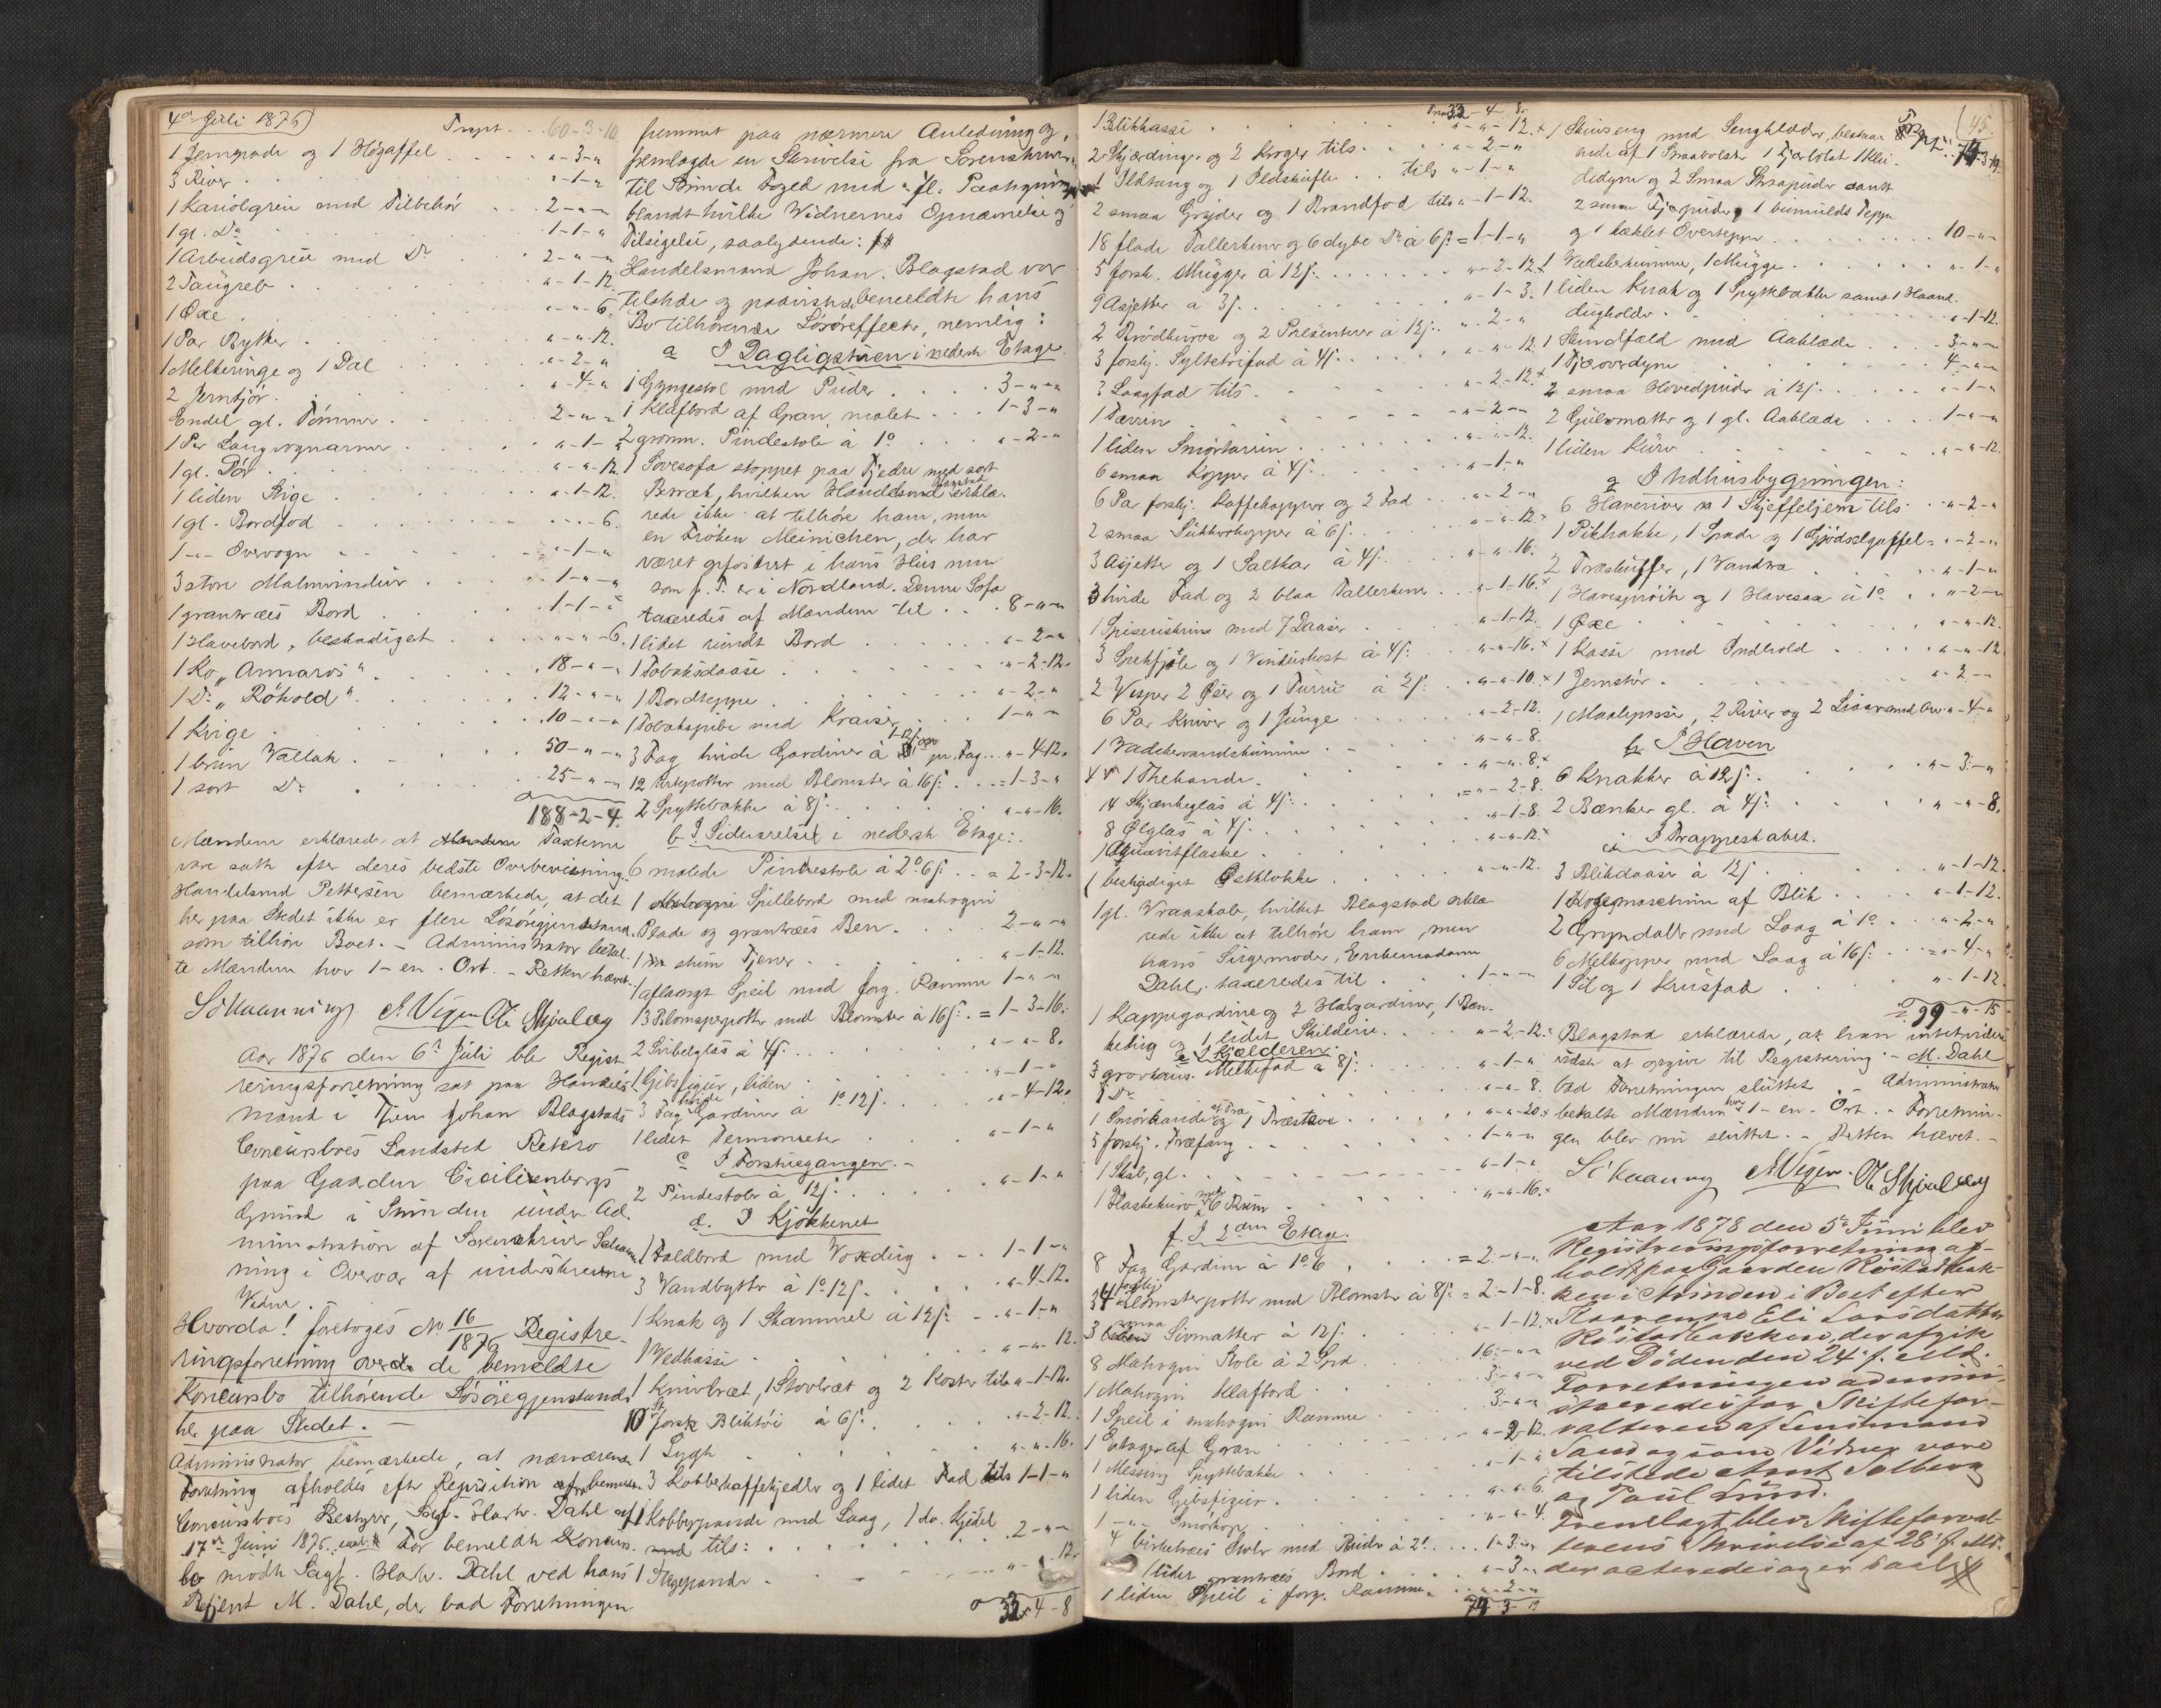 4de Juli 1876)
Trspt. . . 60-3-10
1 Jerngrade og 1 Høgaffel . . . . "-3-"
3 River . . . "-1-"
1 Kariolgreie med Tilbehør . . . 2-"-"
1 gl. Do . . . 1-1-"
1 Arbeidsgreie med Do . . . 2-"-"
2 Taugreb . . . "-1-12.
1 Øxe . . . "-"-6.
1 Par Rykker . . . "-"-12.
1 Melkeringe og 1 Dal . . . "-2-"
2 Jernstør . . . "-4-"
Endel gl. Tømmer . . . 2-"-"
1 Par Langvognarmer . . . "-1-"
1 gl. Dør . . . "-"-12.
1 liden Stige . . . "-1-12.
1 gl. Bordfod . . . "-"-6.
1 -"- Overvogn . . . "-1-"
3 store Malmvinduer . . . 1-"-"
1 grantræes Bord . . . 1-1-"
1 Havebord, beskadiget . . . "-"-6.
1 Ko "Annaros" . . . 18-"-"
1 Do "Røkold" . . . 12-"-"
1 Kvige . . . 10-"-"
1 brun Vallak . . . 50-"-"
1 sort Do . . . 25-"-"
188-2-4.
Mændene erklærede at Taxterne
vare satte efter deres bedste Overbeviisning.
Handelsmd Pettersen bemærkede, at det
her paa Stedet ikke er flere Løsøregjenstande
som tilhøre Boet. - Administrator betal-
te Mændene hver 1 - en - Ort. - Retten hævet.
Aar 1876 den 6te Juli ble Regist
reringsforretning sat paa Handels
mand i Tjen Johan Blagstads
Concursboes Landsted Retiro
paa Gaarden Ciciliænborgs
Grund i Strinden under Ad.
ministration af Sorenskriver
ning i Overvær af underskrevne
Vidner.
Hvorda! foretoges No 16/1876 Registre-
ringsforretning over de bemeldte
Koncursbo tilhørende Løsøregjenstande
her paa Stedet. -
Administrator bemærkede, at nærværende
Forretning afholdes efter Reqvisition af bemeldte
Concursboes Bestyrer, Sagf. Dahl af
17de Juni 1876. For bemeldte Koncurs-
bo mødte Sagf. Dahl ved hans
M. Dahl, der bad Forretningen
fremmet paa nærmere Anledning og
fremlagde en Skrivelse fra Sorenskriver
til Strinde Foged med fl. Paategning
blandt hvilke Vidnernes Opnævnelse og
Tilsigelse, saalydende:
Handelsmand Johan Blagstad var
tilstede og paaviste bemeldte hans
Bo tilhørende Løsøreffecter, nemlig:
a I Dagligstuen i nederste Etage.
1 Gyngestol med Puder . . . 3-"-"
1 Klafbord af Gran, malet . . . 1-3-"
2 grønm. Pindestole à 1o . . . "-2-"
1 Sovesofa stoppet paa Fjedre med sort
Betræk, hvilken Handelsmd Blagstad erklæ-
rede ikke at tilhøre ham, men
en Frøken Meinichen, der har
været opfostret i hans Huus men
som p. T. er i Nordland. Denne Sofa
taxeredes af Mændene til . . . 8-"-"
1 lidet rundt Bord . . . "-2-"
1 Tobaksdaase . . . "-2-12.
1 Bordteppe . . . "-2-"
1 Tobakspibe med . . . 1-"-"
3 Fag hvide Gardiner à pr. Fag . . . "-4-12.
12 Urtepotter med Blomster à 16s. . . = 1-3-"
2 Spyttebakker à 8s. . . . "-"-16.
b. I Sideværelset i nederste Etage:
6 malede Pindestole à 2o 6s. . . = 2-3-12.
1 Spillebord med mahogni
Plade og grantræes Ben . . . 2-"-"
1 stum Tjener . . . "-1-12.
1 aflangt Speil med forg. Ramme 1-"-"
13 Blomsterpotter med Blomster à 16s. = 1-3-16.
2 Svibelglas à 4s. . . . "-"-8.
1 Gibsfigur, liden . . . "-1-"
3 Fag hvide Gardiner à 1o 12s. . . . "-4-12.
1 lidet Termometer . . . "-1-"
c I Forstuegangen. -
2 Pindestole à 12s. . . . "-1-"
d. I Kjøkkenet
1 Foldbord med Voxdug . . . 1-1-"
3 Vandbytter à 1o 12s. . . . "-4-12.
1 Krak og 1 Skammel à 12s. . . "-1-"
1 Vedkasse . . . "-"-12.
1 Knivbræt, 1 Stovbræt og 2 Koster tils "-1-12.
10 St. forsk Bliktøi à 6s. . . . "-2-12.
1 Lygte . . . "-"-16.
3 Kobberkaffekjedler og 1 lidet Fad tils 1-1-"
1 Kobberpande med Laag, 1 do. Kjedel
tils: . . . 2-"-"
1 Stegepande . . . 12.
32-4-8
Trspt 32-4-8.
1 Blikkasse . . . "-"-12.
2 Skjæringer og 2 Kroger tils . . . "-2-"
1 Ildtang og 1 Ildskuffe . . tils "-1-"
2 smaa Gryder og 1 Brandfod tils "-1-12.
18 flade Tallerkener og 6 dybe Do à 6s. = 1-1-"
5 forsk. Mugger à 12s. . . . "-2-12.
9 Asjetter à 3s. . . . "-1-3.
2 Brødkurve og 2 Presenterer à 12s. . "-2-"
3 forskj. Syltetøifad à 4s. . . . "-"-12
3 Laagfad tils . . . "-2-12.
1 Terrin . . . "-2-"
1 liden Smørterrin . . . "-"-12.
6 smaa Kopper à 4s. . . . "-1-"
6 Par forskj. Kaffekopper og 2 Fad . . "-2-"
2 smaa Sukkerkopper à 6s. . . "-"-12.
3 Asjetter og 1 Saltkar à 4s. . . "-"-16.
3 hvide Fad og 2 blaa Tallerkener . . "-1-16.
1 Spiseriskrin med 7 Daaser . . . "-1-12.
3 Spekfjøle og 1 Vinduskost à 4s. . . "-"-16.
2 Visper 2 Øser og 1 Turru à 2s. . . "-"-10.
6 Par Kniver og 1 Junge . . . "-2-12.
1 Vaskevandskumme . . . "-"-8.
1 Thekande . . . "-"-8.
14 Skjænkeglas à 4s. . . . = "-2-8.
8 Ølglas à 4s. . . . "-1-8.
1 Aqvavitflaske . . . "-"-12.
1 beskadiget Osteklokke . . . "-"-12.
1 gl. Vraaskab, hvilket Blagstad erklæ-
rede ikke at tilhøre ham men
hans Svigermoder, Enkemadam
Dahl, taxeredes til . . . 1-"-"
1 Kappegardin og 2 Halvgardiner, 1 Bæn-
kebrig og 1 lidet Skilderie . . . "-2-12.
e. I Kjælderen.
3 grovtøis Melkefad à 8s. . . . "-1-"
1 Do . . . "-"-8.
1 Smørkande af Træ og 1 Træstave . . "-"-20.
5 forskj. Træfang . . . 1-"-"
1 Skab, gl. . . . "-1-"
1 Flaskekurv med 6 Rum . . . "-"-16.
f. I 2den Etage.
8 Fag Gardin à 1o 6 . . . = 2-"-"
34 forskj. Blomsterpotter med Blomster à 8s. = 2-1-8.
3 smaa Sivmatter à 12s. . . . "-1-12.
8 Mahogni Stole à 2 Spd . . . 16-"-"
1 Mahogni Klafbord . . . 3-"-"
1 Speil i mahogni Ramme . . . 3-"-"
1 Etager af Gran . . . "-2-12.
1 Messing Spyttebakke . . . "-1-"
1 liden Gibsfigur . . . "-"-6.
1 -"- Smørkop . . . "-"-4.
4 birketræes Stole med Puder à 2o . . . 1-3-"
1 lidet grantræes Bord . . . "-3-"
1 liden Speil i forg. Ramme . . . "-2-"
74-3-19
(45.
1 Skinseng med Sengklæder, bestaa-
ende af 1 Smaabolster 1 Fjærbolst 1 Klæ-
dedyne og 2 Smaa Straapuder samt
2 smaa Fjærpuder, 1 bomulds Teppe
og 1 hæklet Overteppe . . . 10-"-"
1 Vaskekumme, 1 Mugge . . . "-1-"
1 liden Krak og 1 Spyttebakke samt 1 Haand-
dugholder . . . "-1-12.
1 Skindfæld med Aaklæde . . . 3-"-"
1 Fjæroverdyne . . . 4-"-"
2 smaa Hovedpuder à 12s. . . . "-1-"
2 Gulvmatter og 1 gl. Aaklæde . . . 1-"-"
1 liden Kurv . . . "-"-12.
g I Udhusbygningen:
6 Haveriver og 1 Skjeffeljern tils . . "-2-"
1 Pikhakke, 1 Spade og 1 Gjødselgaffel = "-2-"
2 Træskuffer, 1 Vandva . . . "-1-"
1 Havesprøite og 1 Havesax à 1o . . "-2-"
1 Øxe . . . "-"-12.
1 Kasse med Indhold . . . "-"-12
1 Jernstør . . . "-2-"
1 Maalepasse, 2 River og 2 Liaar med Orv "-4-"
h. I Haven
6 Knakker à 12s. . . . "-3-"
2 Bænker gl. à 4s. . . . "-"-8.
i I Trappeskabet.
3 Blikdaaser à 12s . . . "-1-12.
1 Kogemaschine af Blik . . . "-1-12.
2 Gryndaller med Laag à 1o . . "-2-"
6 Melkopper med Laag à 16s. . = "-4-"
1 Sil og 1 Krusfad . . . "-1-12
99-"-15
Blagstad erklærede, at han intet videre
vidste at opgive til Registrering. - M. Dahl
bad Forretningen sluttet. - Administrator
betalte Mændene hver 1 - en - Ort. - Forretnin-
gen blev nu sluttet. - Retten hævet. -
Aar 1878 den 5te Juni blev
Registreringsforretning af-
holdt paa Gaarden Røstadbak-
ken i Strinden i Boet efter
Eli Larsdatter
Røstadbakken, der afgik
ved Døden den 24de f. Md.
Forretningen admini-
streredes for Skiftefor-
valteren af Lensmand
Sand og som Vidner vare
tilstede Arnt Solberg
og Paul Lund.
Fremlagt blev Skifteforval-
terens Skrivelse af 28de f. Md.
der acteredes og er saal.